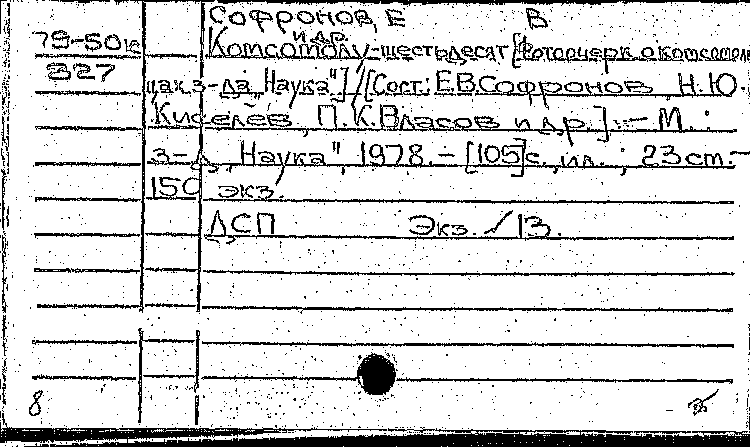 Софронов, Е В
и др.
79-50 Комсомолу-шестьдесят [Фотоочерк о комсомоль
827 цах з-да „Наука"] / [Сост.: Е.В.Софронов, Н.Ю.
Киселёв, П.К.Власов и др.]. — М.:
з-д „Наука", 1978. — [105]с., ил.; 23 см. —
150 экз.
ДСП Экз. ✓13.
8